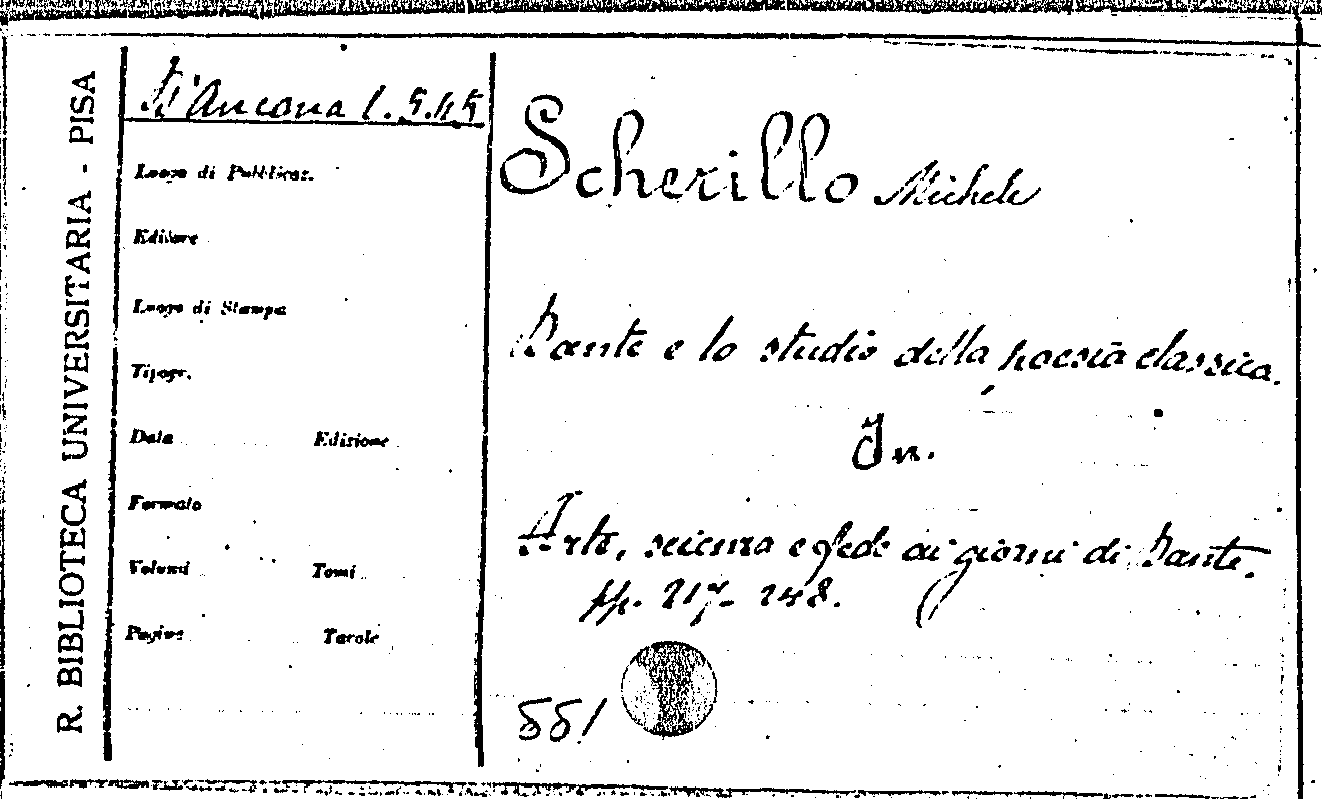 R. BIBLIOTECA UNIVERSITARIA - PISA
D'Ancona 1. 5. 45
Luogo di Pubblicaz.
Editore
Luogo di Stampa
Tipogr.
Data Edizione
Formato
Volumi Tomi
Pagine Tavole
Scherillo Michele
Dante e lo studio della poesia classica.
In.
Arte, scienza e fede ai giorni di Dante.
pp. 217- 248.
551